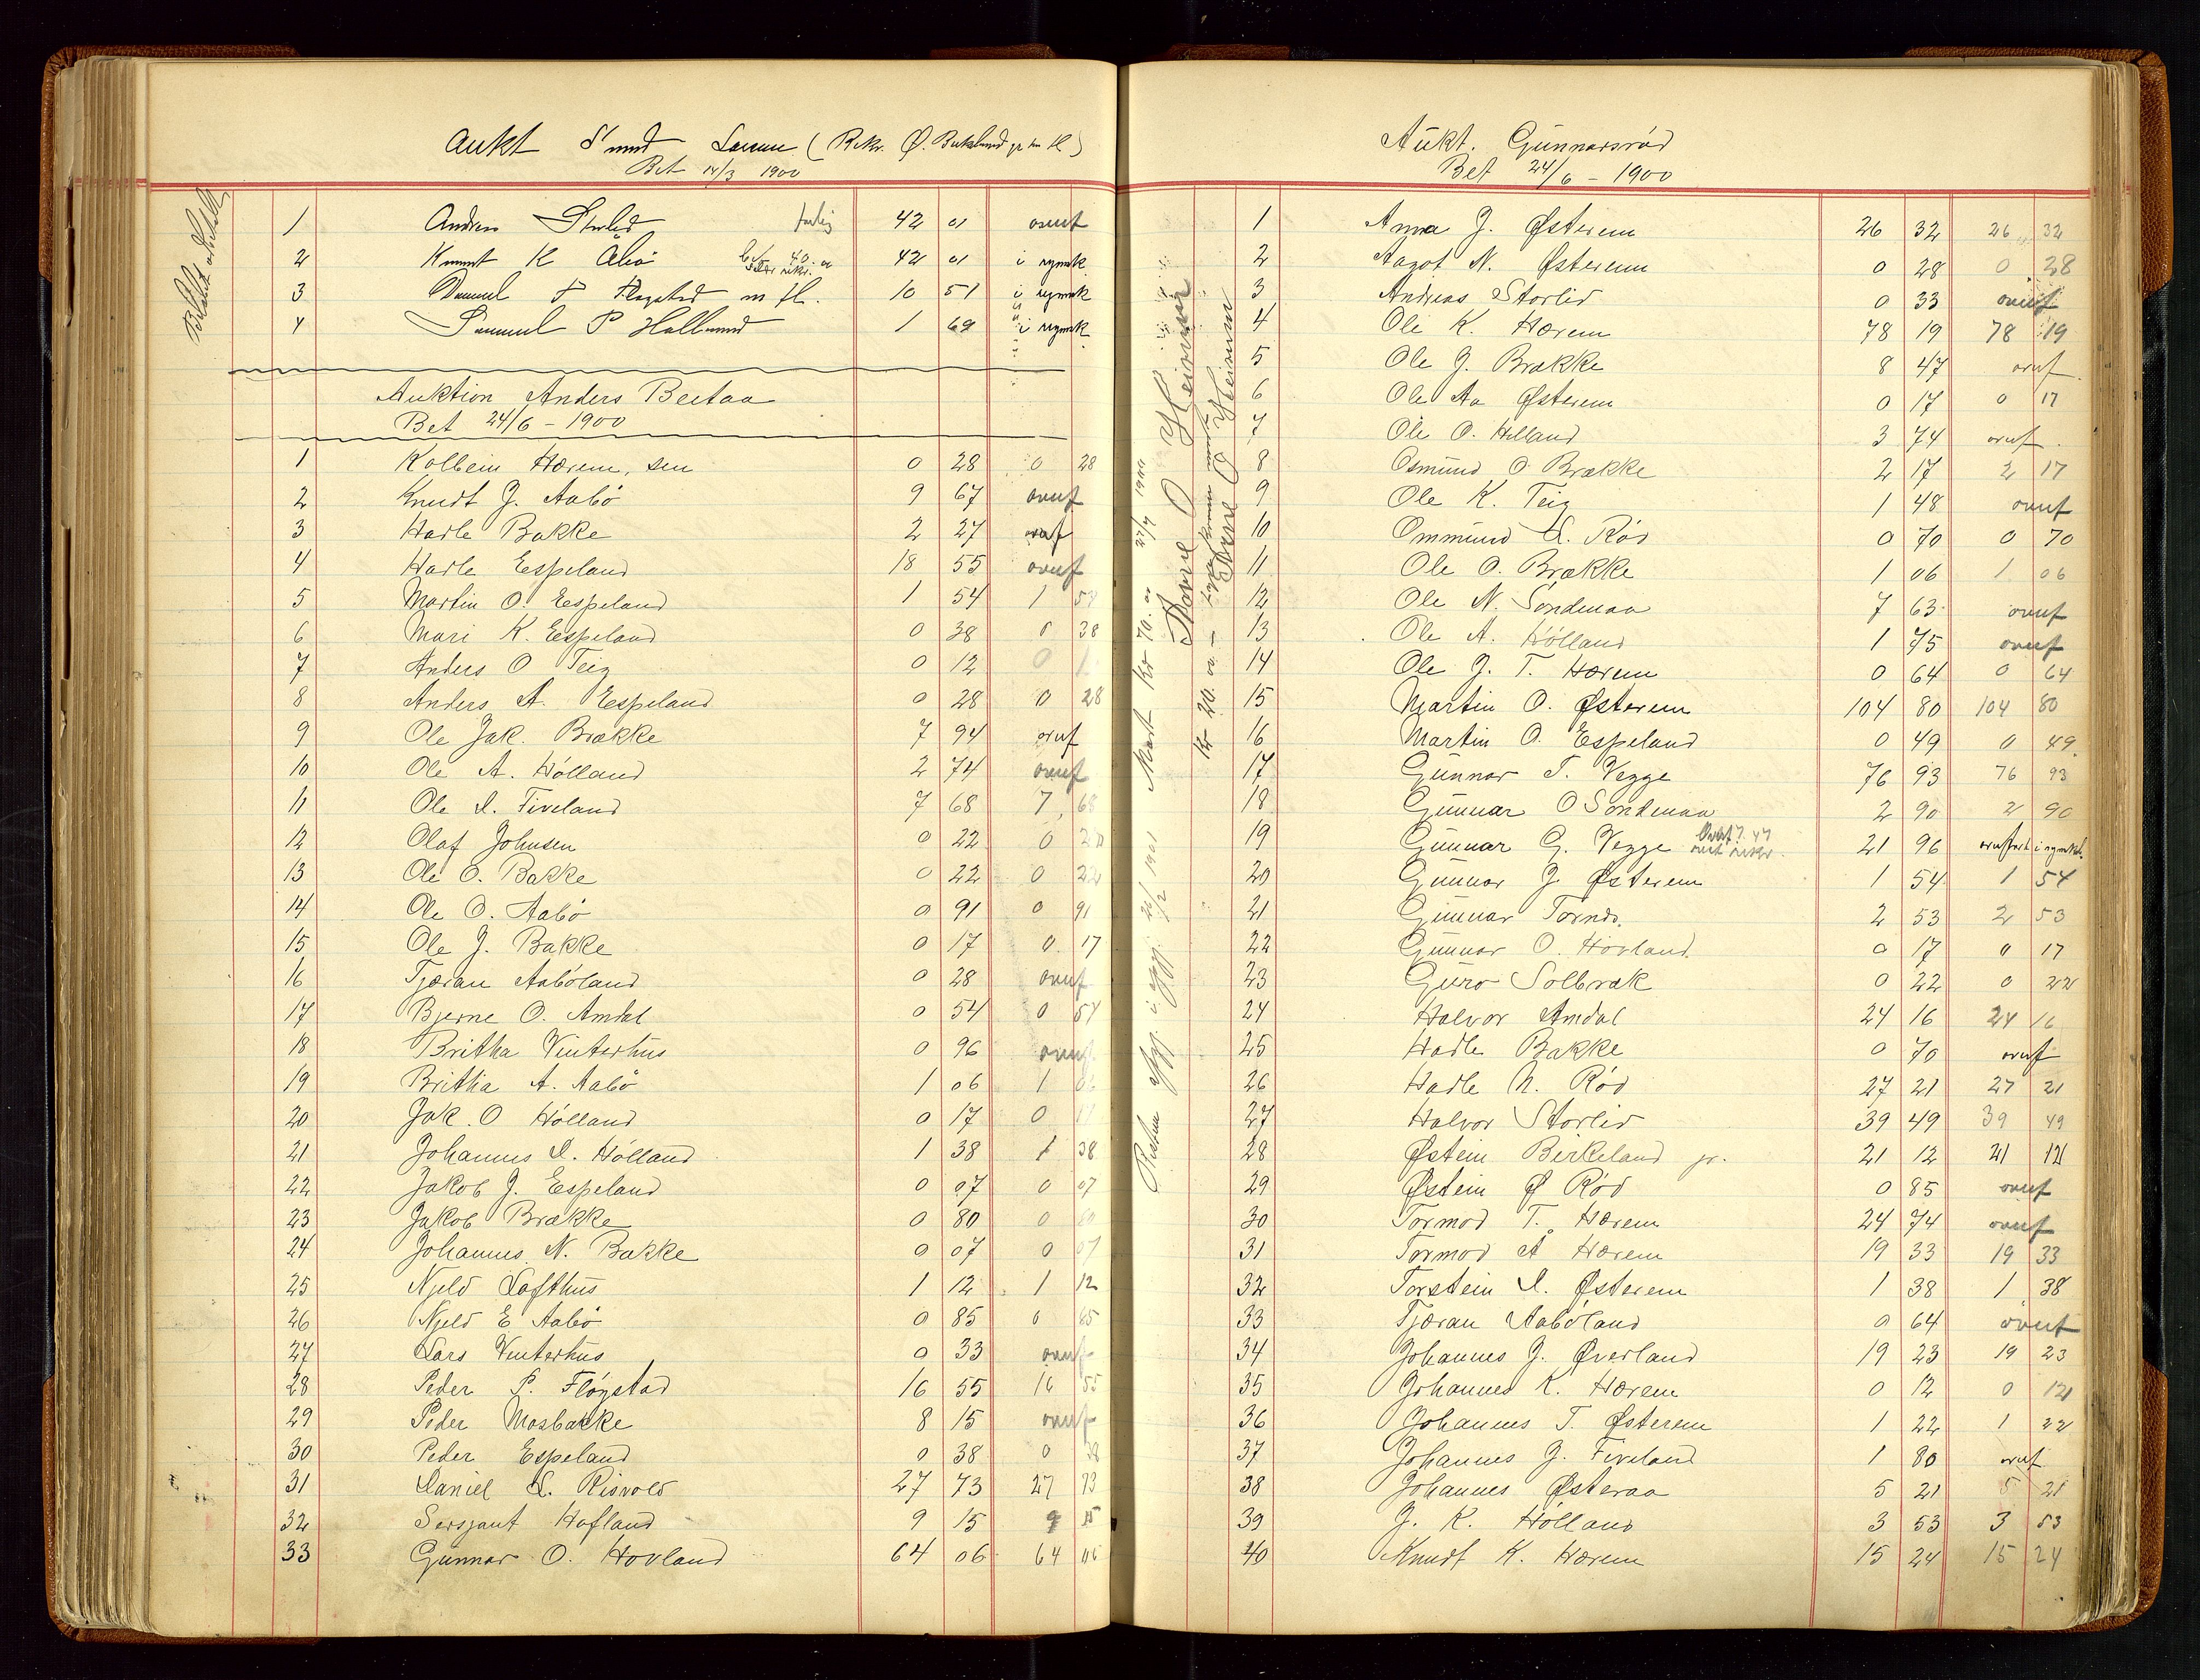 Aukt
Bet 14/3 1900
1 Andreas Storlid 42 01 overf
2 Knut K Åbø 42 01 i regnsk
3 Samuel P Fløgstad m fl. 10 51 i regnsk
4 Samuel P 1 69 i regnsk
Auktion Anders Bertaa
Bet 24/6 - 1900
1 Kolbein Hærem, sen 0 28 0 28
2 Knudt J. Aabø 9 67 overf
3 Hadle Bakke 2 27 overf
4 Hadle Espeland 18 55 overf
5 Martin O. Espeland 1 54 1 54
6 Mari K. Espeland 0 38 0 38
7 Anders O Teig 0 12 0 1
8 Anders A. Espeland 0 28 0 28
9 Ole Jak. Brække 7 94 overf
10 Ole A. Hólland 2 74 overf
11 Ole L. Tiveland 7 68 7 68
12 Olaf Johnsen 0 22 0 22
13 Ole O. Bakke 0 22 0 22
14 Ole O. Aabó 0 91 0 91
15 Ole J. Bakke 0 17 0 17
16 Tjæran Aabóland 0 28 overf
17 Bjerne O. Amdal 0 54 0 54
18 Britha Vinterhus 0 96 overf
19 Britha A. Aabó 1 06 1 06
20 Jak. O Hólland 0 17 0 17
21 Johannes L. Hólland 1 38 1 38
22 Jakob J. Espeland 0 07 0 07
23 Jakob Brække 0 80 0 80
24 Johannes N. Bakke 0 07 0 07
25 Njeld Lofthus 1 12 1 12
26 Njeld E Aabó 0 85 0 85
27 Lars Vinterhus 0 33 overf
28 Peder P. Flógstad 16 55 16 55
29 Peder Mosbakke 8 15 overf
30 Peder Espeland 0 38 0 38
31 Daniel L. Risvold 27 73 27 73
32 Sersjant Hofland 9 15 9 15
33 Gunnar O. Hovland 64 06 64 06
Aukt. Gunnarsród
Bet 24/6 - 1900
1 Anna J. Østerem 26 32 26 32
2 Aagot N. Østerem 0 28 0 28
3 Andreas Storlid 0 33 overf
4 Ole K. Hærem 78 19 78 19
5 Ole J. Brække 8 47 overf
6 Ole Aa Østerem 0 17 0 17
7 Ole O. Hólland 3 74 overf
8 Osmund O Brække 2 17 2 17
9 Ole K. Teig 1 48 overf
10 Ommund L. Ród 0 70 0 70
11 Ole O. Brække 1 06 1 06
12 Ole N. Sóndenaa 7 63 overf
13 Ole A. Hólland 1 75 overf
14 Ole J. T. Hærem 0 64 0 64
15 Martin O. Østerem 104 80 104 80
16 Martin O. Espeland 0 49 0 49
17 Gunnar T. Vegge 76 93 76 93
18 Gunnar O Sóndenaa 2 90 2 90
19 Gunnar G. Vegge 21 96
20 Gunnar J. Østerem 1 54 1 54
21 Gunnar Tornes 2 53 2 53
22 Gunnar O. Hovland 0 17 0 17
23 Guro Solbrak 0 22 0 22
24 Halvor Amdal 24 16 24 16
25 Hadle Bakke 0 70 overf
26 Hadle N. Ród 27 21 27 21
27 Halvor Storlid 39 49 39 49
28 Østein Birkeland jr. 21 12 21 12
29 Østein Ø Ród 0 85 overf
30 Tormod T. Hærem 24 74 overf
31 Tormod A Hærem 19 33 19 33
32 Torstein L. Østerem 1 38 1 38
33 Tjæran Aabóland 0 64 overf
34 Johannes J. Øverland 19 23 19 23
35 Johannes K. Hærem 0 12 0 12
36 Johannes T. Østerem 1 22 1 22
37 Johannes J. Tiveland 1 80 overf
38 Johannes Østeraa 5 21 5 21
39 J. K. Hólland 3 53 3 53
40 Knudt K. Hærem 15 24 15 24